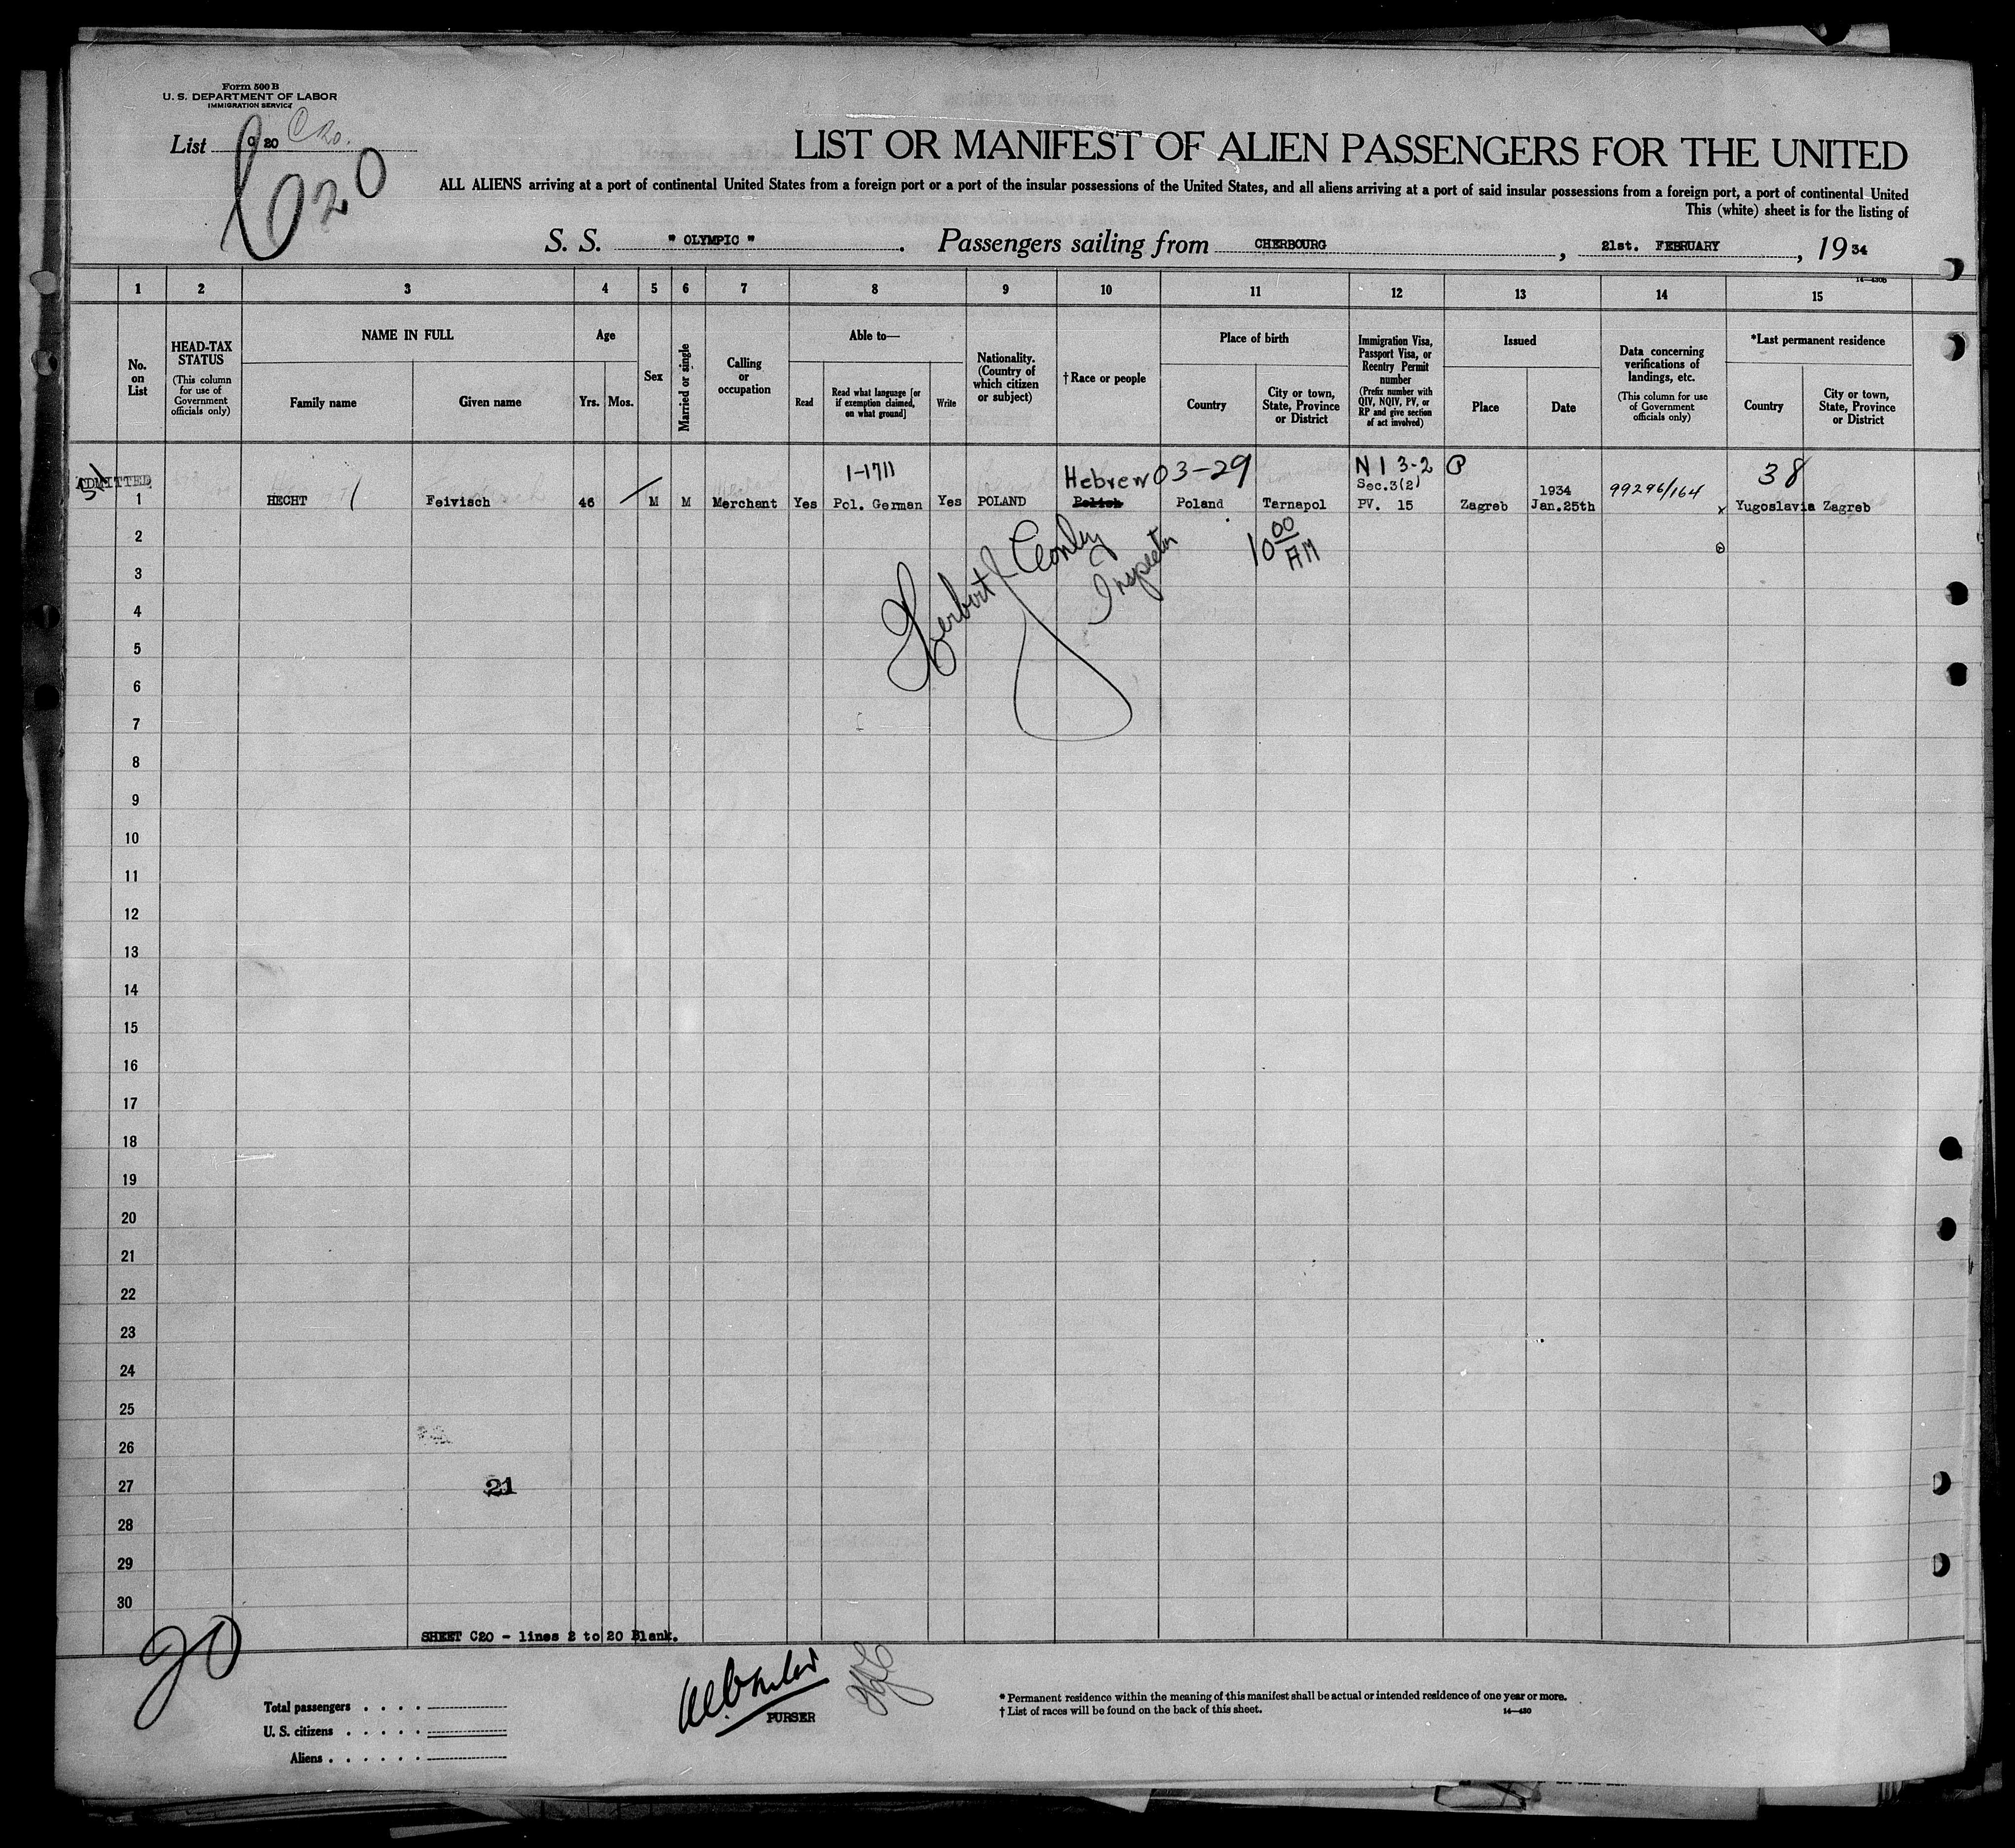 Form 500 B
U. S. DEPARTMENT OF LABOR
IMMIGRATION SERVICE
List C 20 C 20.
C 20
LIST OR MANIFEST OF ALIEN PASSENGERS FOR THE UNITED
ALL ALIENS arriving at a port of continental United States from a foreign port or a port of the insular possessions of the United States, and all aliens arriving at a port of said insular possessions from a foreign port, a port of continental United
This (white) sheet is for the listing of
S. S. " OLYMPIC ". Passengers sailing from CHERBOURG, 21st. FEBRUARY, 1934
14—430b
1 2 3 4 5 6 7 8 9 10 11 12 13 14 15
No. on List
HEAD-TAX STATUS
(This column for use of Government officials only)
NAME IN FULL
Family name
Given name
Age
Yrs. Mos.
Sex
Married or single
Calling or occupation
Able to—
Read
Read what language [or if exemption claimed, on what ground]
Write
Nationality. (Country of which citizen or subject)
†Race or people
Place of birth
Country
City or town, State, Province or District
Immigration Visa, Passport Visa, or Reentry Permit number
(Prefix number with QIV, NQIV, PV, or RP and give section of act involved)
Issued
Place
Date
Data concerning verifications of landings, etc.
(This column for use of Government officials only)
*Last permanent residence
Country
City or town, State, Province or District
ADMITTED
1-1711 Hebrew 03-29 N I 3-2 P 38
Sec.3(2) 1934 99296/164
1 HECHT Feivisch 46 M M Merchant Yes Pol. German Yes POLAND Polish Poland Tarnapol PV. 15 Zagreb Jan.25th x Yugoslavia Zagreb
2
3
4
5
6
7
8
9
10
11
12
13
14
15
16
17
18
19
20
21
22
23
24
25
26
27
28
29
30
Herbert Conley
Inspector
10 00 AM
21
SHEET C20 - lines 2 to 20 Blank.
20
Total passengers . . . .
U. S. citizens . . . . .
Aliens . . . . . .
PURSER
* Permanent residence within the meaning of this manifest shall be actual or intended residence of one year or more.
† List of races will be found on the back of this sheet.
14—430